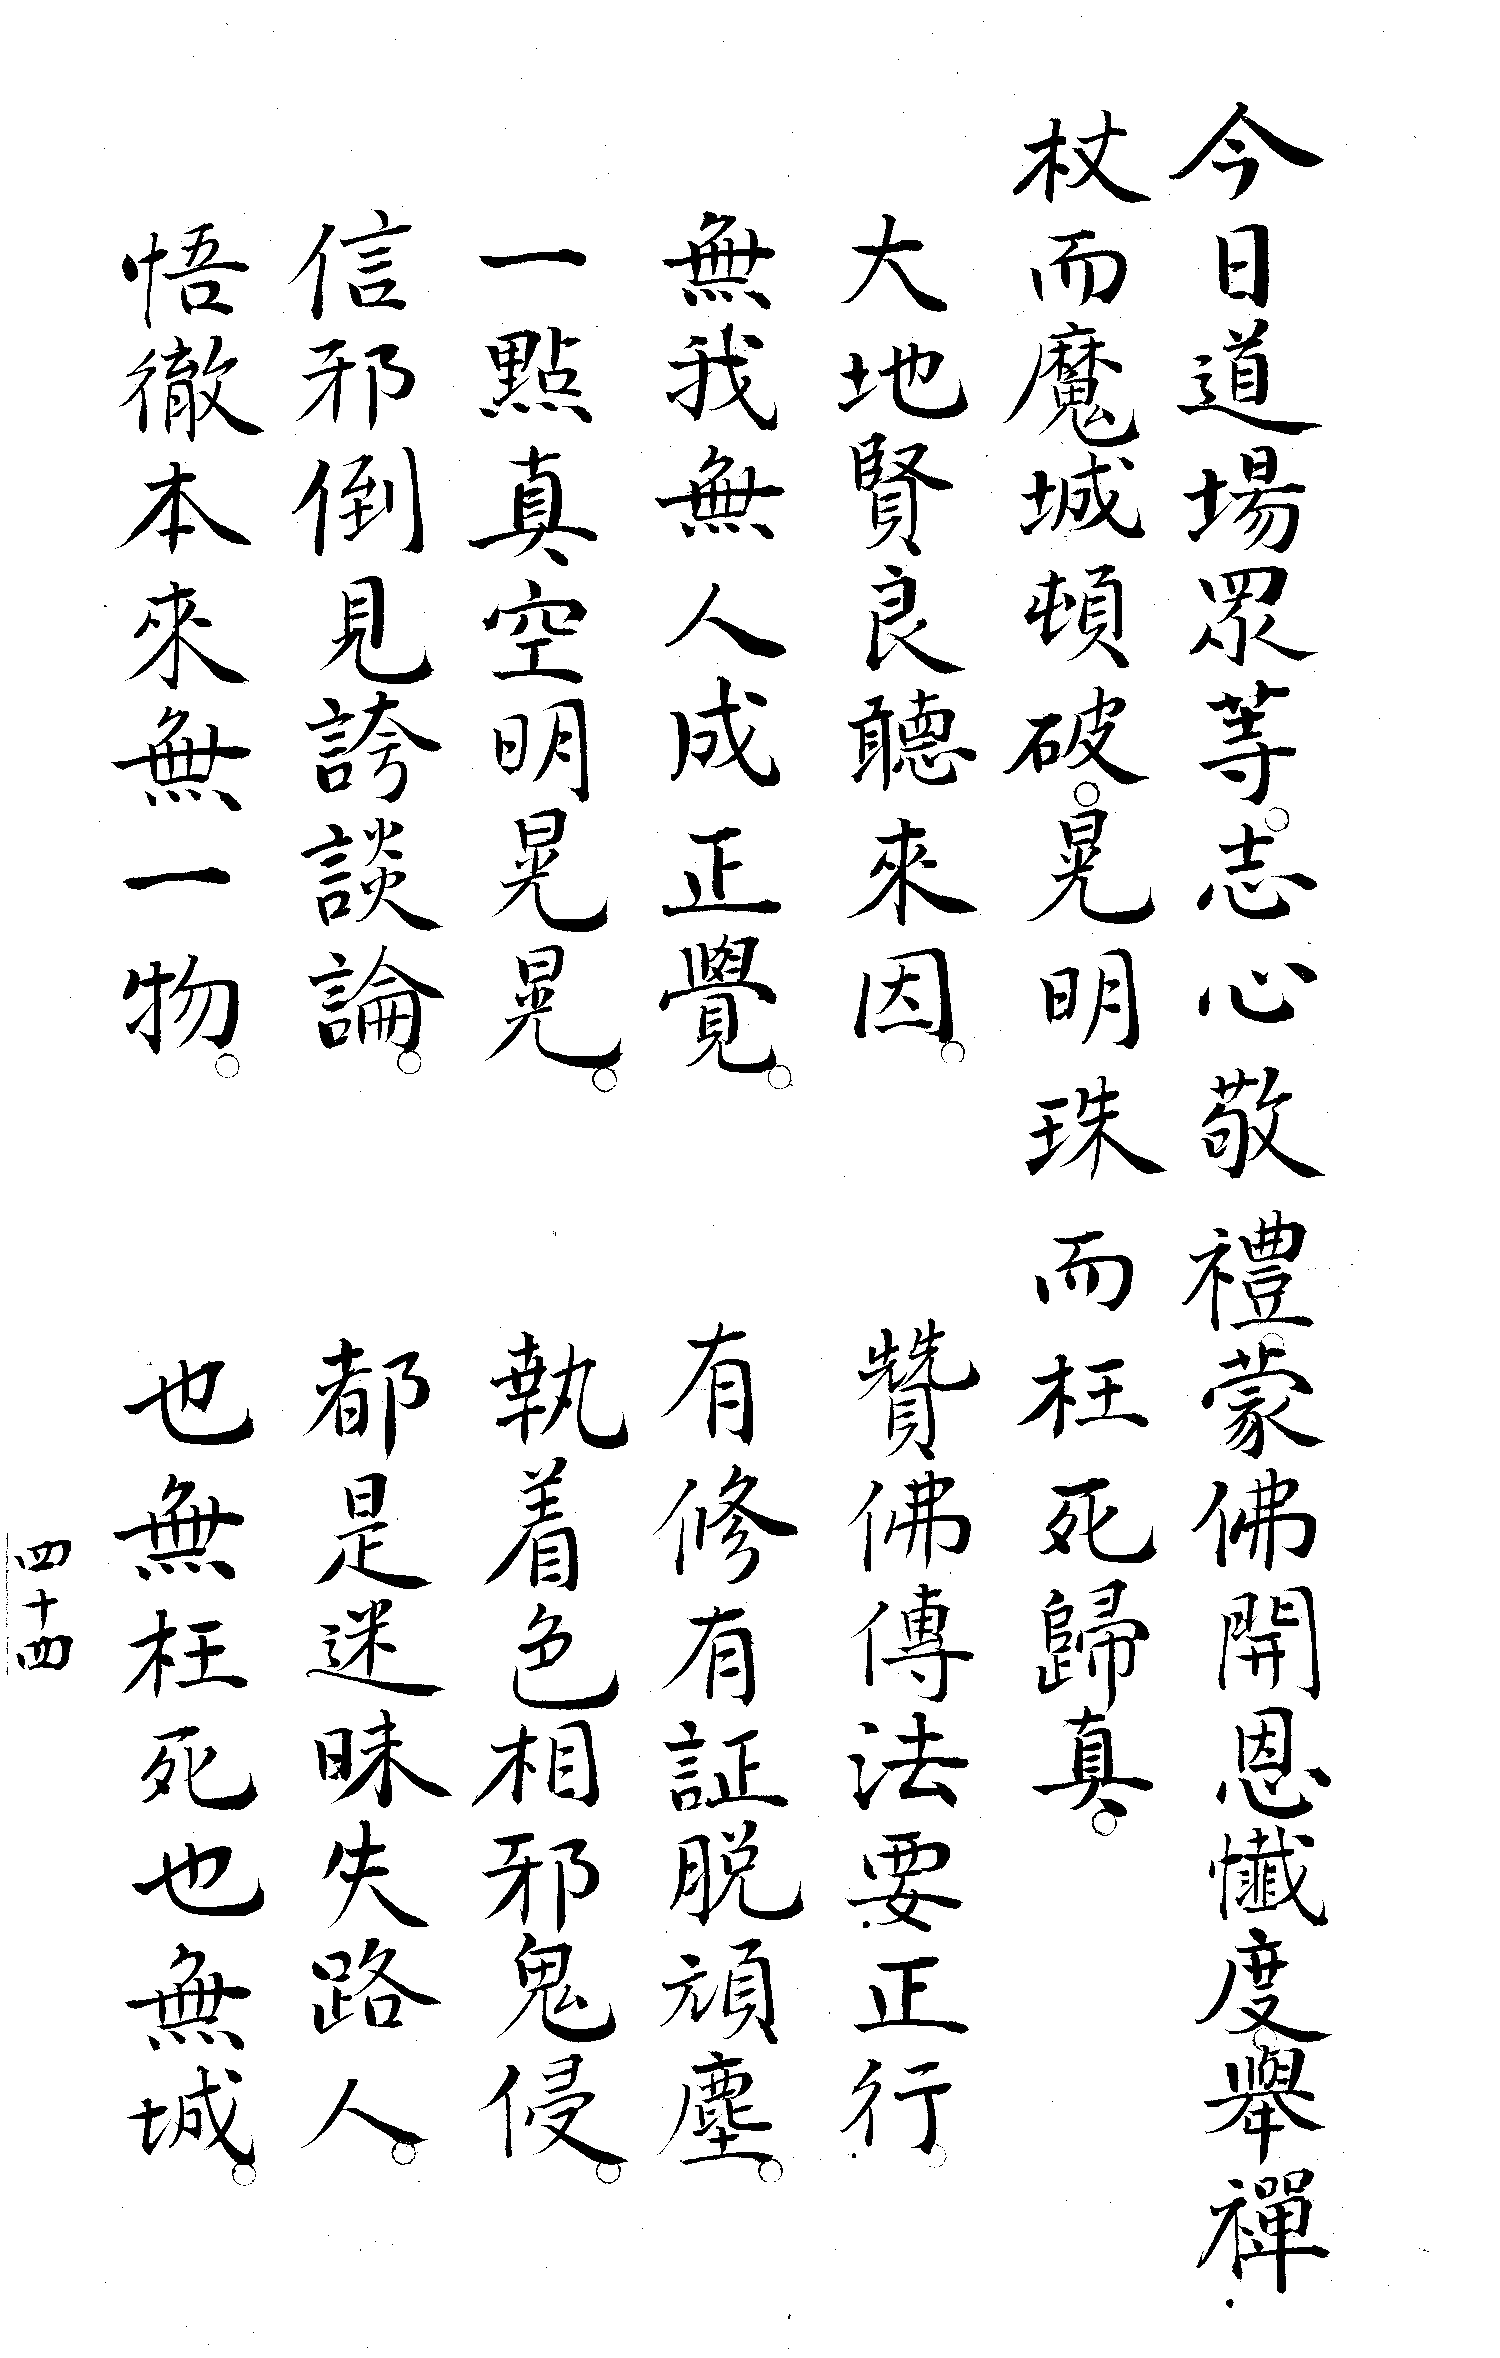 今日道場眾等。志心敬禮。蒙佛開恩懺度。舉禪
杖而魔城頓破。晃明珠而枉死歸真。
大地賢良聽來因。 贊佛傳法要正行。
無我無人成正覺。 有修有証脱頑塵。
一點真空明晃晃。 執着色相邪鬼侵。
信邪倒見誇談論。 都是迷昧失路人。
悟徹本來無一物。 也無枉死也無城。
四十四